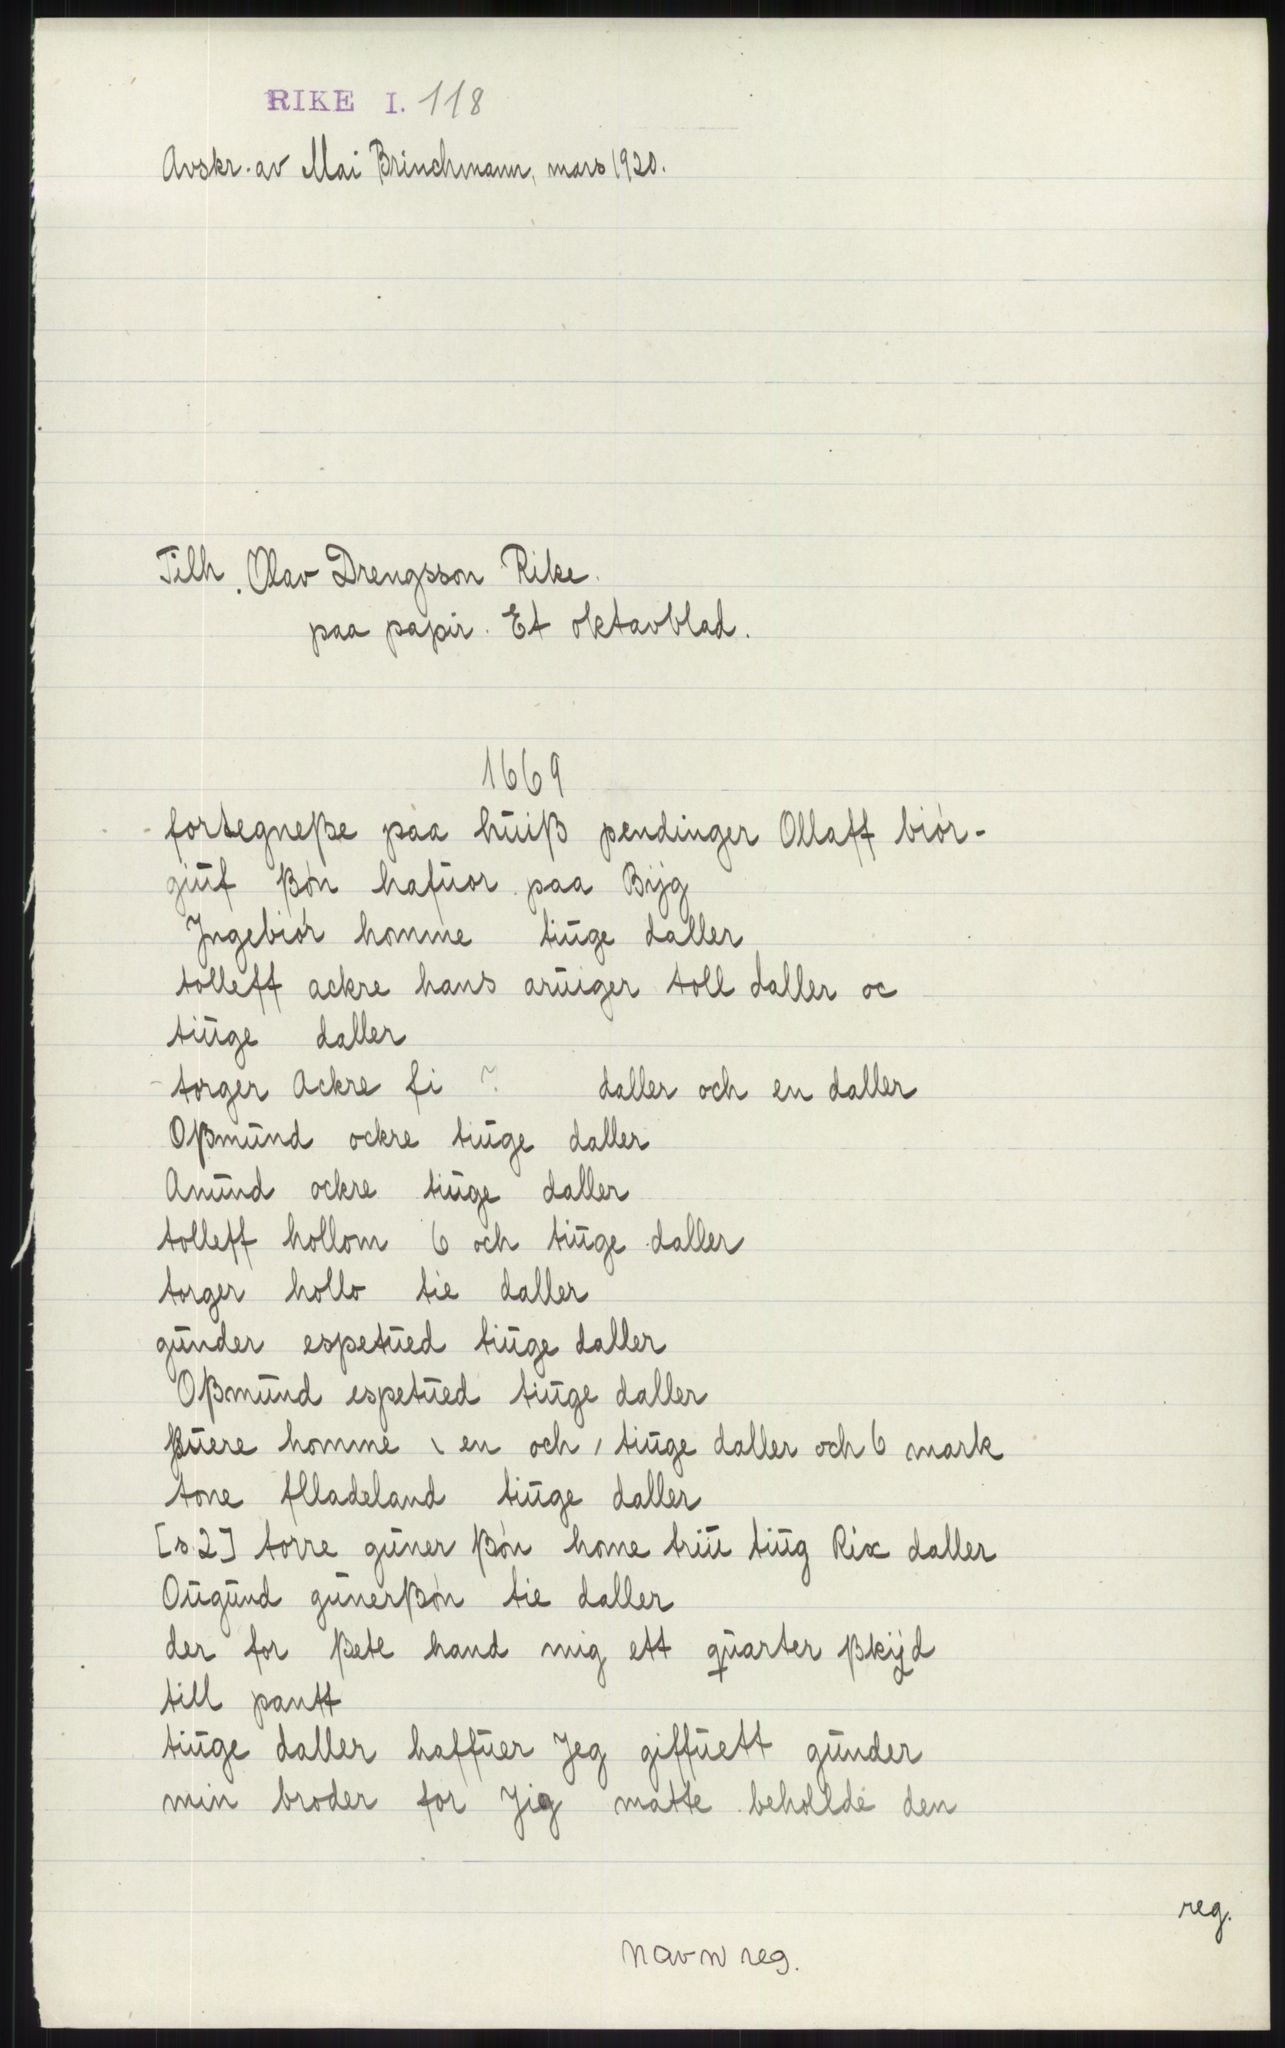 RIKE I. 118
Avskr. av Mai Brinchmann, mars 1920.
Tilh. Olav Drengsson Rike.
paa papir. Et oktavblad.
1669
fortegneße paa huiß pendinger Ollaff biør-
giuf ßøn hafuor paa Bijg
Jngebiør homme tiuge daller
tolleff ackre hans aruiger toll daller oc
tiuge daller
torger Ackre fi ? daller och en daller
Oßmund ockre tiuge daller
Anund ockre tiuge daller
tolleff hollom 6 och tiuge daller
torger hollo tie daller
gunder espetued tiuge daller
Oßmund espetued tiuge daller
ßuere homme en och tiuge daller och 6 mark
tone flladeland tiuge daller
[s 2] torre guner ßøn home triu tiug Rix daller
Ougund gunerßøn tie daller
der for ßete hand mig ett quarter ßkijd
till pantt
tiuge daller haffuer Jeg giffuett gunder
min broder for Jig matte behollde den
reg.
Navnreg.